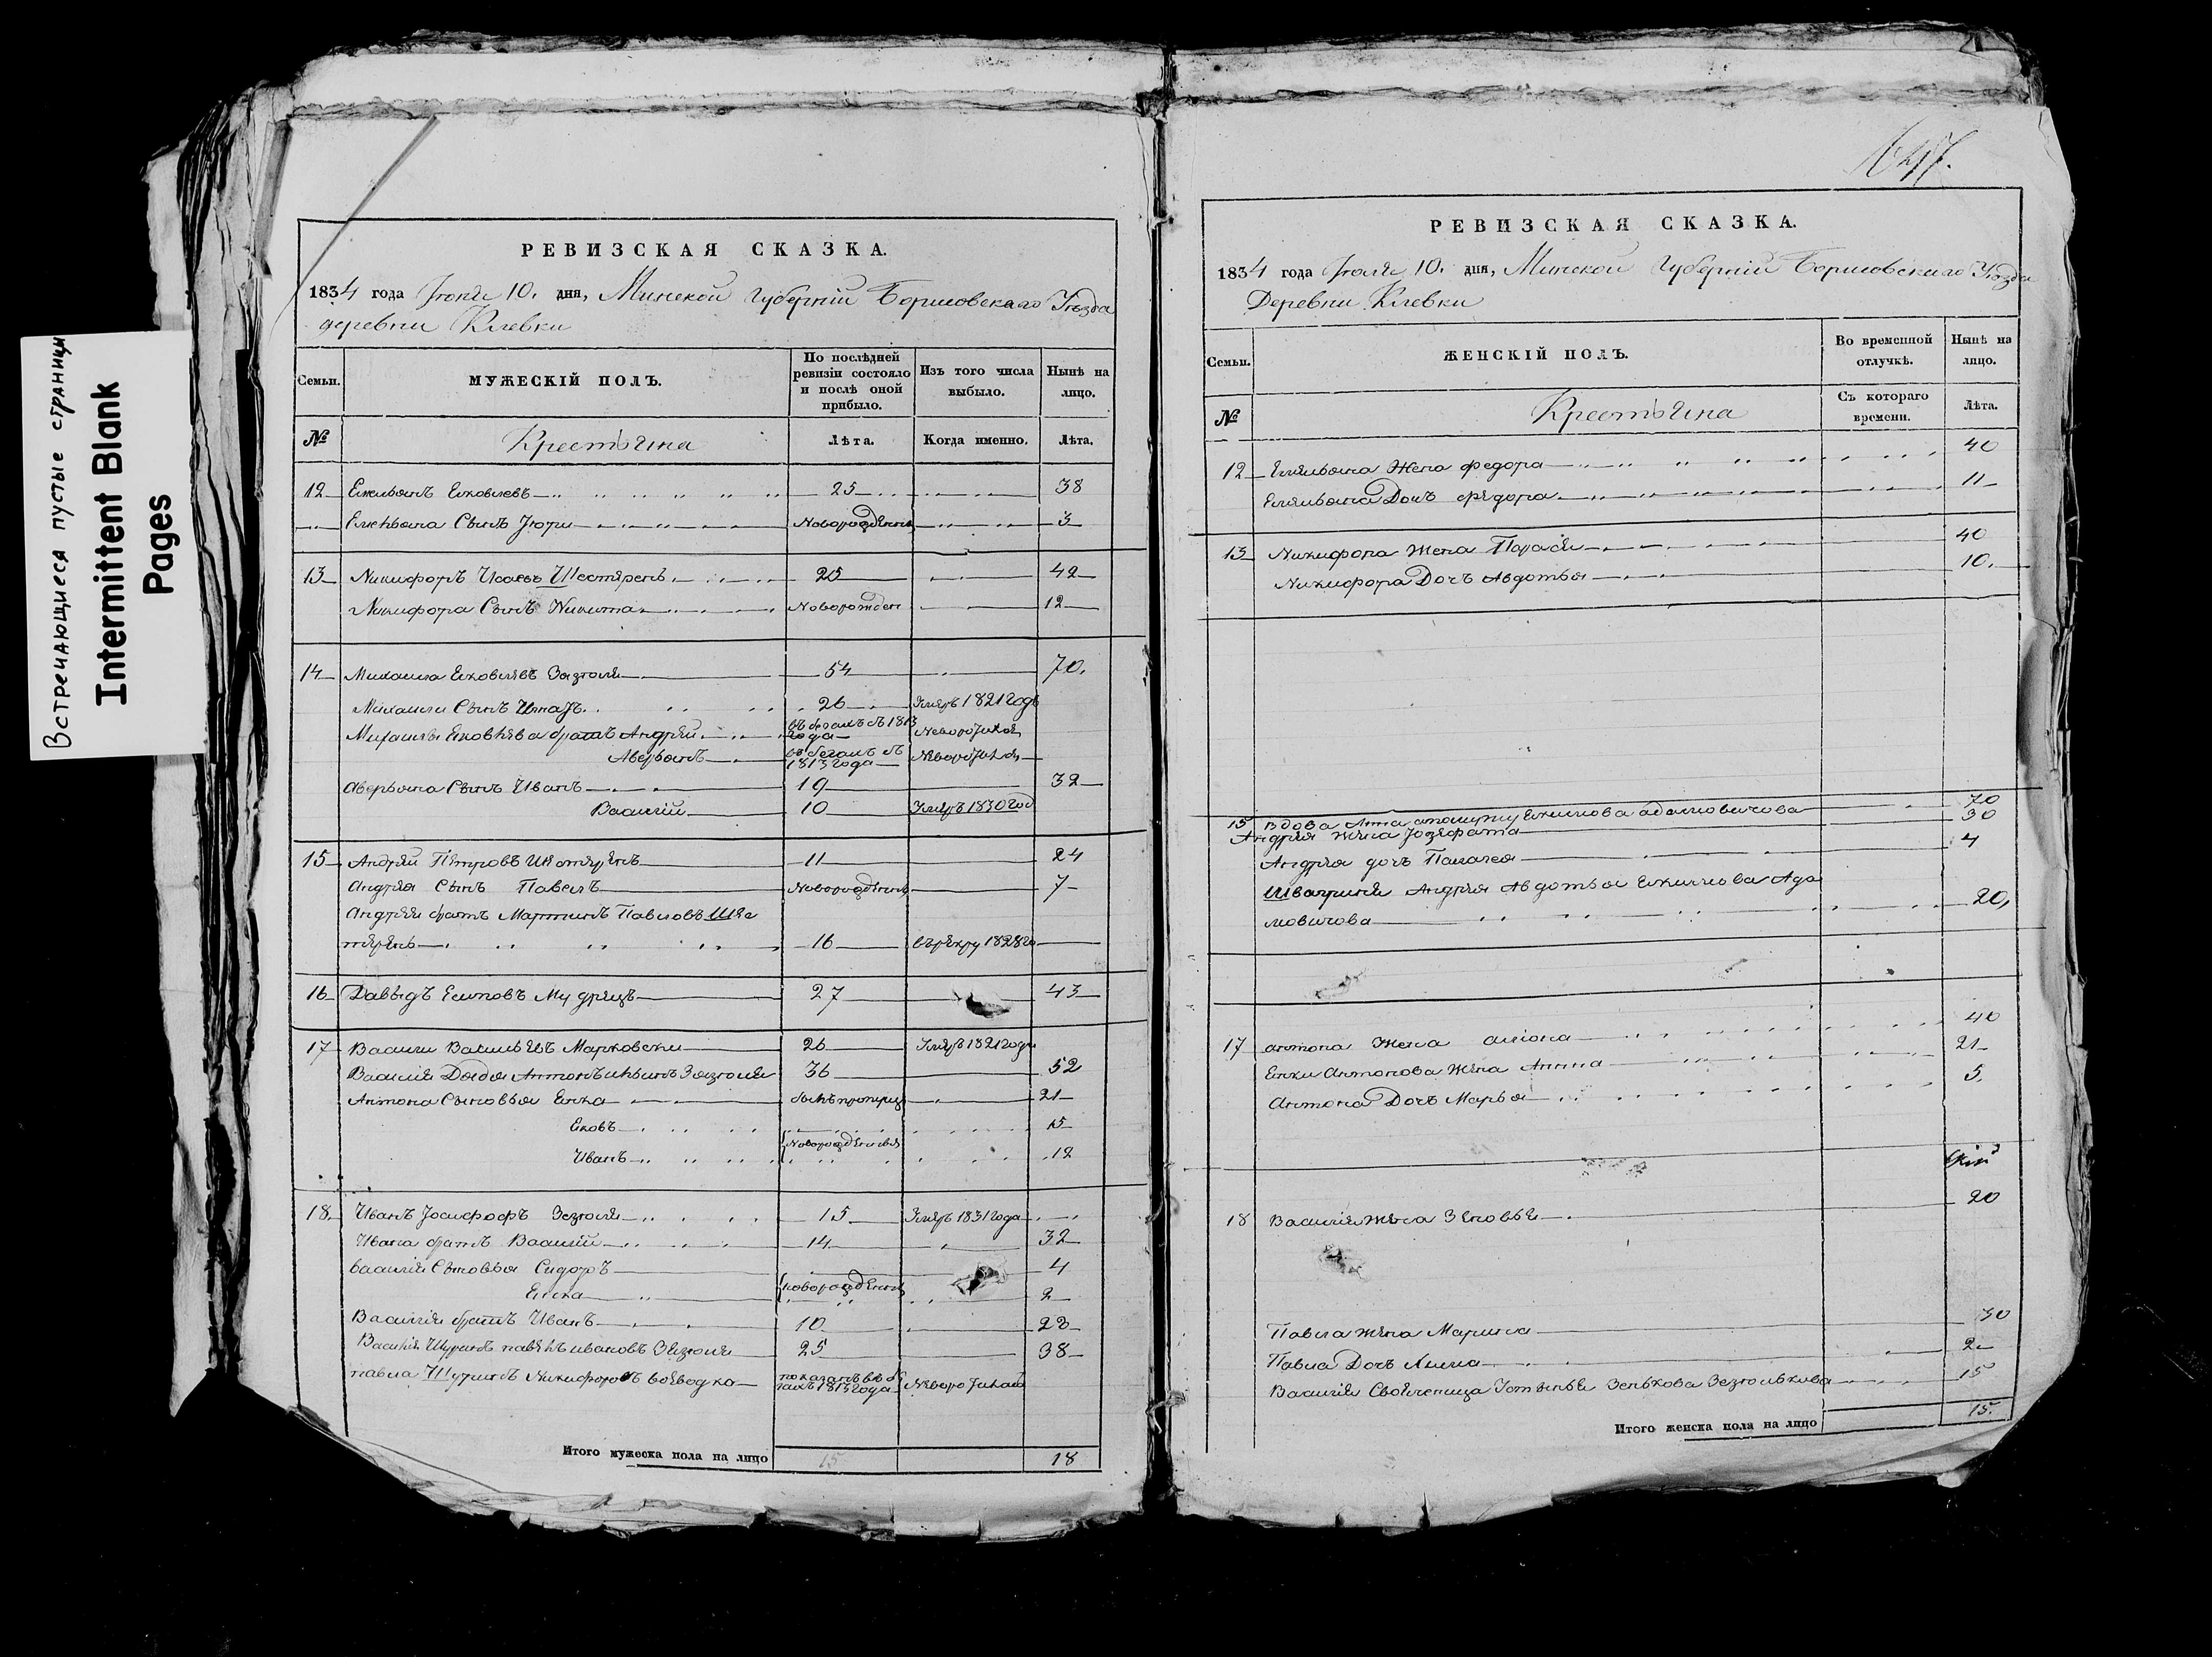 Встречающиеся пустые страницы
Intermittent Blank
Pages
РЕВИЗСКАЯ СКАЗКА.
1834 года Іюня 10. дня, Минской Губерніи Борисовскаго Уѣзда
деревни Клевки
Семьи. МУЖЕСКІЙ ПОЛЪ. По послѣдней ревизіи состояло и послѣ оной прибыло. Изъ того числа выбыло. Нынѣ на лицо.
№ Крестьяна Лѣта. Когда именно. Лѣта.
12 Емельянъ Яковлевъ 25 38
Емельяна Сынъ Новорожденн 3
13 Никифоръ Исаевъ Шестерень 25 42
Никифора Сынъ Никита Новорожден 12
14 Михаила Яковлевъ Зязюля 54 70.
Михаила Сынъ Игнатъ 26 Умеръ 1821 года
Михаила Яковлева братъ Андрей въ бегахъ съ 1813 года
Аверьянъ въ бегахъ съ 1813 года
Аверьяна Сынъ Иванъ 19 32
Василій 10 Умеръ 1830 год
15 Андрей Петровъ Шестерень 11 24
Андрея Сынъ Павелъ Новорожденн 7
Андрея братъ Мартинъ Павловъ Шес
терень 16 въ рекру 1828 го
16 Давыдъ Есиповъ Мудрецъ 27 43
17 Васили Васильевъ Марковски 26 Умеръ 1821 года
Василия Дядя Антонъ Зязюля 36 52
Антона Сыновья Янка 21
Яковъ 15
Иванъ Новорожденные 12
18. Иванъ Іосифофъ Зезюля 15 Умеръ 1831 года
Ивана братъ Василій 14 32
Василія Сыновья Сидоръ 4
Янка новорожденн 2
Василія братъ Иванъ 10 28
Василія Шуринъ Ивановъ Зезюля 25 38
Павла Шуринъ Никифоръ Воеводко показанъ въ бегахъ 1813 года
Итого мужеска пола на лицо 15 18
647.
РЕВИЗСКАЯ СКАЗКА.
1834 года Іюля 10. дня, Минской Губерніи Борисовскаго Уѣзда
Деревни Клевки
Семьи. ЖЕНСКІЙ ПОЛЪ. Во временной отлучкѣ. Нынѣ на лицо.
№ Крестьяна Съ котораго времени. Лѣта.
12 Емельяна Жена Федора 40
Емельяна Дочъ Федора 11
13 Никифора Жена Парасія 40
Никифора Дочъ Авдотья 10.
15 Вдова Анна Адамовичова 70
Андрея Жена Іозефата 30
Андрея дочъ Палагея 4
Швагриня Андрея Авдотья Ада
мовичова 20,
17 Антона Жена 40
Янки Антонова Жена Анна 21
Антона Дочъ Марья 5.
18 Василія Жена Зеновья 20
Павла Жена Марина 30
Павла Дочъ 2
Василія Свояченица Зенькова Зезюлькова 15
Итого женска пола на лицо 15.